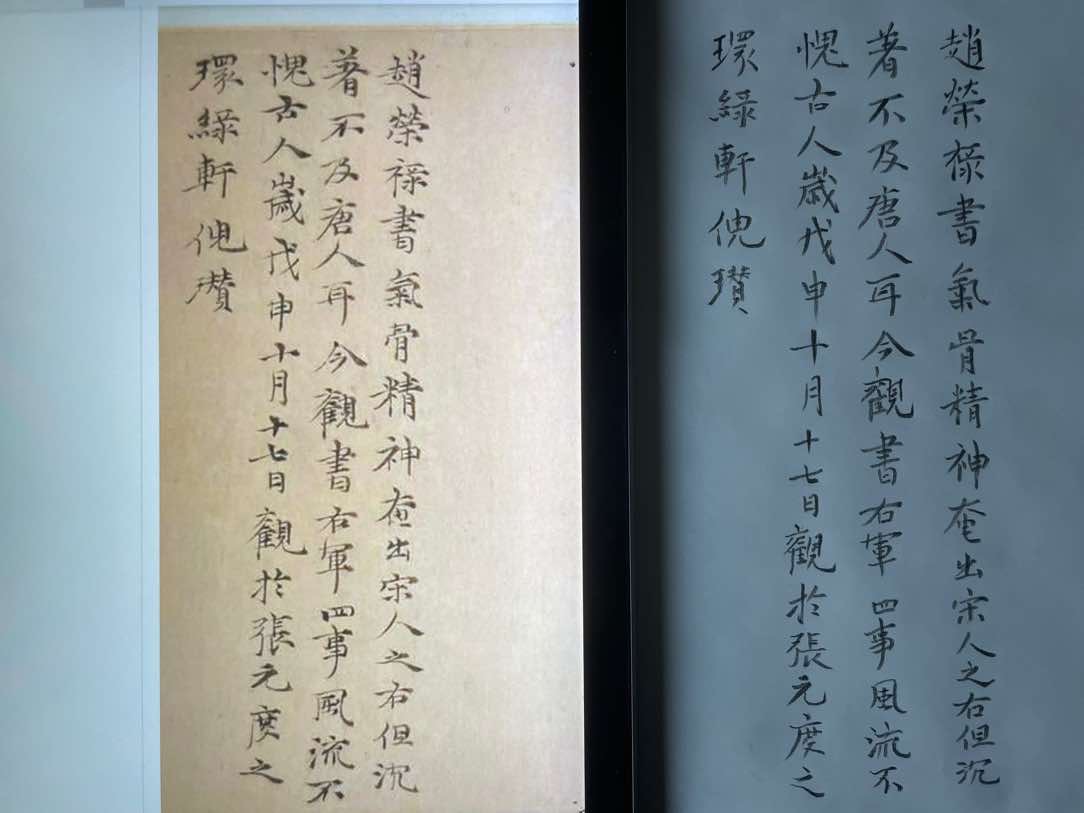 趙榮祿書氣骨精神奄出宋人之右但沉
著不及唐人耳今觀書右軍四事風流不
愧古人歲戊申十月十七日觀於張元度之
環綠軒倪瓚
趙榮祿書氣骨精神奄出宋人之右但沉
著不及唐人耳今觀書右軍四事風流不
愧古人歲戊申十月十七日觀於張元度之
環綠軒倪瓚